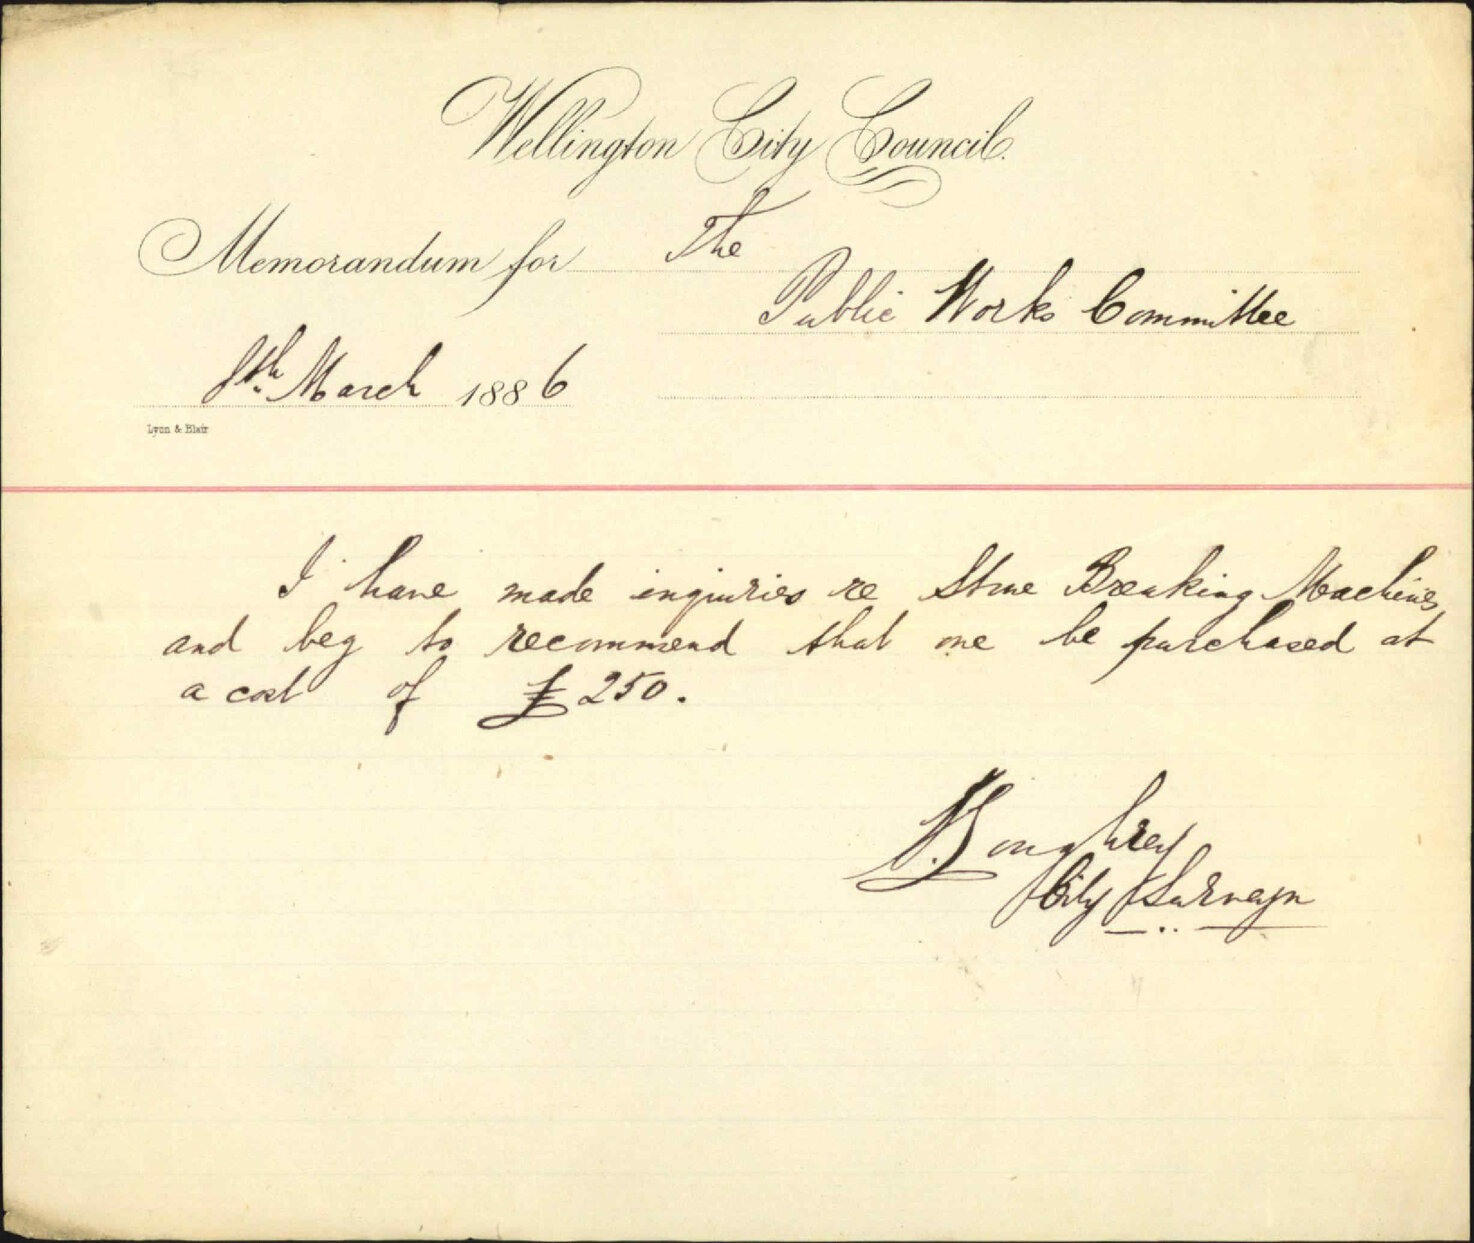 Wellington City Council.
Memorandum for The
Public Works Committee
8th March 1886
Lyon & Blair
I have made inquiries re Stone Breaking Machines
and beg to recommend that one be purchased at
a cost of £250.
Loughrey
City Surveyor